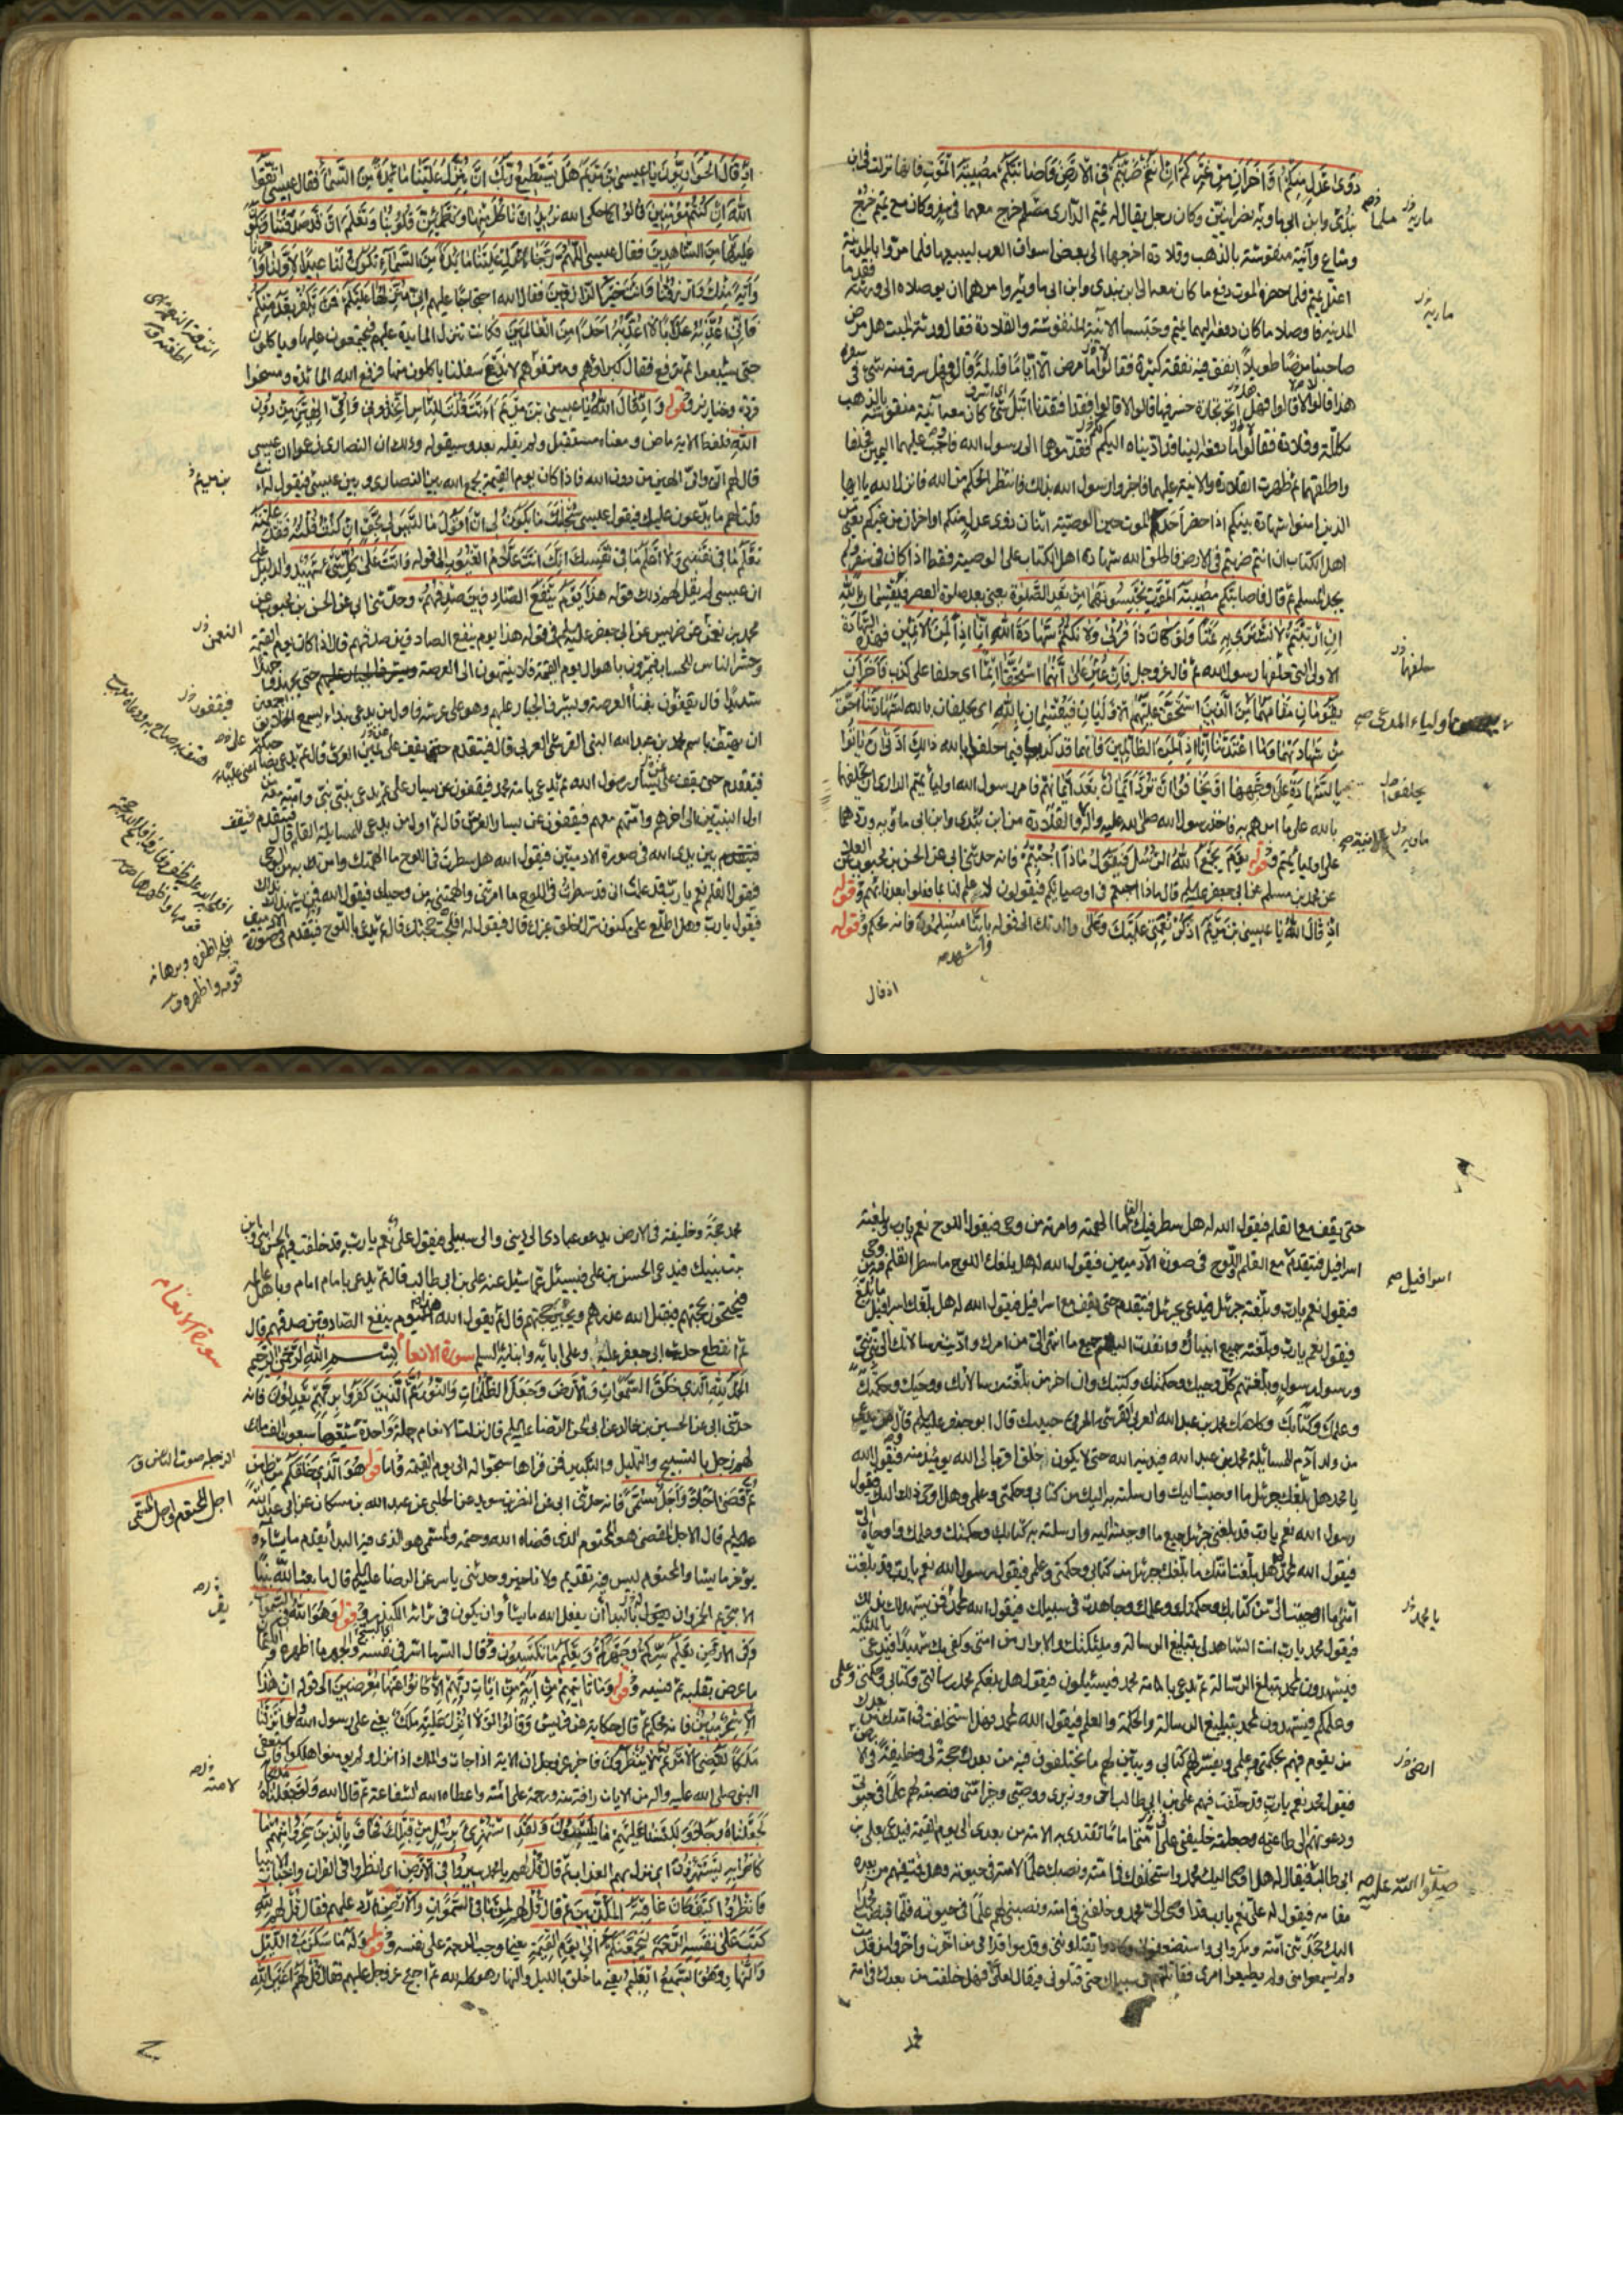 ذَوٰی عَدْلٍ مِنْکُمْ اَوْ اٰخَرَانِ مِنْ غَیْرِکُمْ اِنْ اَنْتُمْ ضَرَبْتُمْ فِی الْاَرْضِ فَاَصَابَتْکُمْ مُصِیبَةُ الْمَوْتِ فانها نزلت فی ابن
بندی وابن ابی ماریه نصرانیین وکان رجل یقال له تمیم الداری مسلم خرج معهما فی سفر وکان مع تمیم خرج
ومتاع وآنیة منقوشة بالذهب وقلادة اخرجها الی بعض اسواق العرب لیبیعها فلما مروا بالمدینة
اعتل تمیم فلما حضره الموت دفع ما کان معه الی ابن بندی وابن ابی ماریه وامرهما ان یوصلاه الی ورثته فقدما
المدینة فاوصلا ما کان دفعه الیهما تمیم وحبسا الآنیة المنقوشة والقلادة فقال ورثة المیت هل مرض
صاحبنا مرضا طویلا انفق فیه نفقة کثیرة فقالوا ما مرض الا ایاما قلیلة قالوا فهل سرق منه شیء فی سفره
هذا قالوا لا قالوا فهل اتجر تجارة خسر فیها قالوا لا قالوا فقد افتقدنا انبل شیء کان معه آنیة منقوشة بالذهب
مکللة وقلادة فقالوا ما دفعه الینا قد ادیناه الیکم فقدموهما الی رسول الله فاوجب علیهما الیمین فحلفا
واطلقهما ثم ظهرت القلادة والآنیة علیهما فاخبروا رسول الله بذلک فانتظر الحکم من الله فانزل الله یا ایها
الذین امنوا شهادة بینکم اذا حضر احدکم الموت حین الوصیة اثنان ذوی عدل منکم او اخران من غیرکم یعنی من
اهل الکتاب ان انتم ضربتم فی الارض فاطلق الله شهادة اهل الکتاب علی الوصیة فقط اذا کان فی سفر ولم
یجد المسلم ثم قال فاصابتکم مصیبة الموت تحبسونهما من بعد الصلوة یعنی بعد صلوة العصر فیقسمان بالله
ان ارتبتم لا نشتری به ثمنا ولو کان ذا قربی ولا نکتم شهادة الله انا اذا لمن الاثمین فهذه الشهادة
الاولی التی حلفها رسول الله ثم قال عز وجل فان عثر علی انهما استحقا اثما ای حلفا علی کذب فاخران
یقومان مقامهما من الذین استحق علیهم الاولیان فیقسمان بالله ای یحلفان بالله لشهادتنا احق
من شهادتهما وما اعتدینا انا اذا لمن الظالمین
بالشهادة علی وجهها او یخافوا ان ترد ایمان بعد ایمانهم فامر رسول الله اولیاء تمیم الداری ان یحلفوا
بالله علی ما امرهم به فاخذ رسول الله صلی الله علیه وآله القلادة من ابن بندی وابن ابی ماریه وردهما
علی اولیاء تمیم وقوله یوم یجمع الله الرسل فیقول ماذا اجبتم فانه حدثنی ابی عن الحسن بن محبوب عن العلاء
عن محمد بن مسلم عن ابی جعفر علیه السلم قال ماذا اجبتم فی اوصیائکم فیقولون لا علم لنا بما فعلوا بعدنا بهم وقوله
اذ قال الله یا عیسی بن مریم اذکر نعمتی علیک وعلی والدتک الی قوله باننا مسلمون فانه محکم وقوله
واشهد
اذ قال
ماریه
ماریه
حلفها
اولیاء المدعی
یحلفوا
ماریه
اذ قال الحواریون یا عیسی ابن مریم هل یستطیع ربک ان ینزل علینا مائدة من السماء فقال عیسی اتقوا
الله ان کنتم مؤمنین قالوا کما حکی الله نرید ان ناکل منها وتطمئن قلوبنا ونعلم ان قد صدقتنا ونکون
علیها من الشاهدین فقال عیسی اللهم ربنا انزل علینا مائدة من السماء تکون لنا عیدا لاولنا واخرنا
وایة منک وارزقنا وانت خیر الرازقین فقال الله احتجاجا علیهم انی منزلها علیکم فمن یکفر بعد منکم
فانی اعذبه عذابا لا اعذبه احدا من العالمین فکانت تنزل المائدة علیهم فیجتمعون علیها ویاکلون
حتی یشبعوا ثم ترفع فقال کبراؤهم ومترفوهم لا ندع سفلتنا یاکلون منها فرفع الله المائدة ومسخوا
قردة وخنازیر وقوله واذ قال الله یا عیسی بن مریم اءنت قلت للناس اتخذونی وامی الهین من دون
الله فلفظ الایة ماض ومعناه مستقبل ولم یقله بعد وسیقوله وذلک ان النصاری زعموا ان عیسی
قال لهم انی وامی الهین من دون الله فاذا کان یوم القیمة یجمع الله بین النصاری وبین عیسی فیقول له اءنت
قلت لهم ما یدعون علیک فیقول عیسی سبحانک ما یکون لی ان اقول ما لیس لی بحق ان کنت قلته فقد علمته
تعلم ما فی نفسی ولا اعلم ما فی نفسک انک انت علام الغیوب الی قوله وانت علی کل شیء شهید والدلیل علی
ان عیسی لم یقل لهم ذلک قوله هذا یوم ینفع الصادقین صدقهم وحدثنی ابی عن الحسن بن محبوب عن
محمد بن نعمن عن ضریس عن ابی جعفر علیه السلم فی قوله هذا یوم ینفع الصادقین صدقهم قال اذا کان یوم القیمة
وحشر الناس للحساب فیمرون باهوال یوم القیمة فلا ینتهون الی العرصة حتی یجهدوا جهدا
شدیدا قال یقفون بفناء العرصة ویشرف الجبار علیهم وهو علی عرشه فاول من یدعی بنداء یسمع الخلائق اجمعین
ان یهتف باسم محمد بن عبد الله النبی القرشی العربی قال فیتقدم حتی یقف علی یمین العرش قال ثم یدعی بصاحبکم
فیتقدم حتی یقف علی یسار رسول الله ثم یدعی بامة محمد فیقفون عن یسار علی ثم یدعی بنبی نبی وامته معه من
اول النبیین الی اخرهم وامتهم معهم فیقفون عن یسار العرش قال ثم اول من یدعی للمسایلة القلم قال فیتقدم فیقف
بین یدی الله فی صورة الادمیین فیقول الله هل سطرت فی اللوح ما الهمتک وامرتک به من الوحی
فیقول القلم نعم یا رب قد علمت انی قد سطرت فی اللوح ما امرتنی والهمتنی من وحیک فیقول الله فمن یشهد لک بذلک
فیقول یا رب وهل اطلع علی مکنون سرک خلق غیرک قال فیقول له افلجت حجتک قال ثم یدعی باللوح فیتقدم فی صورة الادمیین
بن مریم
النعمن
فیقفون
حتی یقف مع القلم فیقول الله له هل سطر فیک القلم ما الهمته وامرته من وحیی فیقول اللوح نعم یا رب وبلغته
اسرافیل فیتقدم مع القلم واللوح فی صورة الآدمیین فیقول الله له هل بلغک اللوح ما سطر القلم من وحیی
فیقول نعم یا رب وبلغته جبرئیل فیدعی بجبرئیل فیتقدم حتی یقف مع اسرافیل فیقول الله له هل بلغک اسرافیل ما بلغ
فیقول نعم یا رب وبلغته جمیع انبیائک وانفذت الیهم جمیع ما انتهی الی من امرک وادیت رسالاتک الی نبی نبی
ورسول رسول وبلغتهم کل وحیک وحکمتک وکتبک وان اخر من بلغته رسالاتک ووحیک وحکمتک
وعلمک وکتابک وکلامک محمد بن عبد الله العربی القرشی الحرمی حبیبک قال ابو جعفر علیه السلم فاول من یدعی
من ولد آدم للمسائلة محمد بن عبد الله فیدنیه الله حتی لا یکون خلق اقرب الی الله یومئذ منه فیقول الله
یا محمد هل بلغک جبرئیل ما اوحیت الیک وارسلته به الیک من کتابی وحکمتی وعلمی وهل اوحی ذلک الیک فیقول
رسول الله نعم یا رب قد بلغنی جبرئیل جمیع ما اوحیته الیه وارسلته به من کتابک وحکمتک وعلمک واوحاه الی
فیقول الله لمحمد هل بلغت امتک ما بلغک جبرئیل من کتابی وحکمتی وعلمی فیقول رسول الله نعم یا رب قد بلغت
امتی ما اوحیت الی من کتابک وحکمتک وعلمک وجاهدت فی سبیلک فیقول الله لمحمد فمن یشهد لک بذلک
فیقول محمد یا رب انت الشاهد لی بتبلیغ الرسالة وملئکتک والابرار من امتی وکفی بک شهیدا فیدعی بالملئکة
فیشهدون لمحمد بتبلیغ الرسالة ثم یدعی بامة محمد فیسئلون فیقول هل بلغکم محمد رسالتی وکتابی وحکمتی وعلمی
وعلمکم فیشهدون لمحمد بتبلیغ الرسالة والحکمة والعلم فیقول الله لمحمد فهل استخلفت فی امتک من بعدک
من یقوم فیهم بحکمتی وعلمی ویفسر لهم کتابی ویبین لهم ما یختلفون فیه من بعدک حجة لی وخلیفة فی الارض
فیقول محمد نعم یا رب قد خلفت فیهم علی بن ابی طالب اخی ووزیری ووصیی وخیر امتی ونصبته لهم علما فی حیوتی
ودعوتهم الی طاعته وجعلته خلیفتی علی امتی اماما تقتدی به الامة من بعدی الی یوم القیمة فیدعی بعلی بن
ابی طالب فیقال له هل اوصی الیک محمد واستخلفک فی امته ونصبک علما لامته فی حیوته وهل قمت فیهم من بعده
مقامه فیقول له علی نعم یا رب قد اوصی الی محمد وخلفنی فی امته ونصبنی لهم علما فی حیوته فلما قبضت محمدا
الیک جحدتنی امته ومکروا بی واستضعفونی وکادوا یقتلوننی وقدموا قدامی من اخرت واخروا من قدمت
ولم یسمعوا منی ولم یطیعوا امری فقاتلتهم فی سبیلک حتی قتلونی فیقال لعلی فهل خلفت من بعدک فی امة
محمد
اسرافیل
یا محمد
ارضی
صلوات الله علیه
محمد حجة وخلیفة فی الارض یدعو عبادی الی دینی والی سبیلی فیقول علی نعم یا رب قد خلفت فیهم الحسن ابنی وابن
بنت نبیک فیدعی الحسن بن علی فیسئل عما سئل عنه علی بن ابی طالب قال ثم یدعی بامام امام وباهل عالمه
فیحتجون بحجتهم فیقبل الله عذرهم ویجیز حجتهم قال ثم یقول الله هذا یوم ینفع الصادقین صدقهم قال
ثم انقطع حدیث ابی جعفر علیه وعلی ابائه وابنائه السلم سورة الانعام بسم الله الرحمن الرحیم
الحمد لله الذی خلق السموات والارض وجعل الظلمات والنور ثم الذین کفروا بربهم یعدلون فانه
حدثنی ابی عن الحسین بن خالد عن ابی الحسن الرضا علیه السلم قال نزلت الانعام جملة واحدة شیعها سبعون الف ملک
لهم زجل بالتسبیح والتهلیل والتکبیر فمن قراها سبحوا له الی یوم القیمة واما قوله هو الذی خلقکم من طین
ثم قضی اجلا واجل مسمی فانه حدثنی ابی عن النضر بن سوید عن الحلبی عن عبد الله بن مسکان عن ابی عبد الله
علیه السلم قال الاجل المقضی هو المحتوم الذی قضاه الله وحتمه والمسمی هو الذی فیه البداء یقدم ما یشاء و
یؤخر ما یشاء والمحتوم لیس فیه تقدیم ولا تاخیر وحدثنی یاسر عن الرضا علیه السلم قال ما بعث الله نبیا
الا بتحریم الخمر وان یقر له بالبداء ان یفعل الله ما یشاء وان یکون فی تراثه الکندر وقوله وهو الله فی السموات
وفی الارض یعلم سرکم وجهرکم ویعلم ما تکسبون وقال السر ما اسر فی نفسه والجهر ما اظهره والکتمان
ما عرض بقلبه ثم نسیه وقوله وما تاتیهم من آیة من ایات ربهم الا کانوا عنها معرضین الی قوله ان هذا
الا سحر مبین فانه محکم ثم قال حکایة عن قریش وقالوا لولا انزل علیه ملک یعنی علی رسول الله ولو انزلنا
ملکا لقضی الامر ثم لا ینظرون فاخبر عز وجل ان الایة اذا جاءت والملک اذا نزل ولم یؤمنوا هلکوا فاستعفی
النبی صلی الله علیه واله من الایات رافة منه ورحمة علی امته واعطاه الله الشفاعة ثم قال الله ولو جعلناه ملکا
لجعلناه رجلا وللبسنا علیهم ما یلبسون ولقد استهزئ برسل من قبلک فحاق بالذین سخروا منهم ما
کانوا به یستهزؤن ای نزل بهم العذاب ثم قال قل لهم یا محمد سیروا فی الارض ای انظروا فی القران واخبار الانبیاء
فانظروا کیف کان عاقبة المکذبین ثم قال قل لهم لمن ما فی السموات والارض ثم رد علیهم فقال قل لهم لله
کتب علی نفسه الرحمة لیجمعنکم الی یوم القیمة یعنی اوجب الرحمة علی نفسه وقوله وله ما سکن فی اللیل
والنهار وهو السمیع العلیم یعنی ما خلق باللیل والنهار هو کله لله ثم احتج عز وجل علیهم فقال قل لهم اغیر الله
سورة الانعام
الزجل صوت الناس
اجل المحتوم واجل المسمی
یقر
لامته